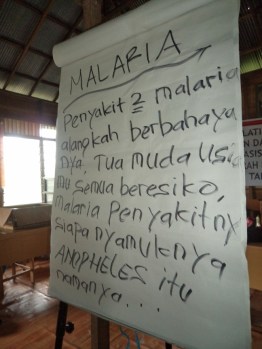 MALARIA
Penyakit 2 malaria
alangkah berbahaya
nya. Tua muda usia
mu semua beresiko,
malaria Penyakitny
siapa nyamuknya
ANOPHELES itu
namanya....
LATI